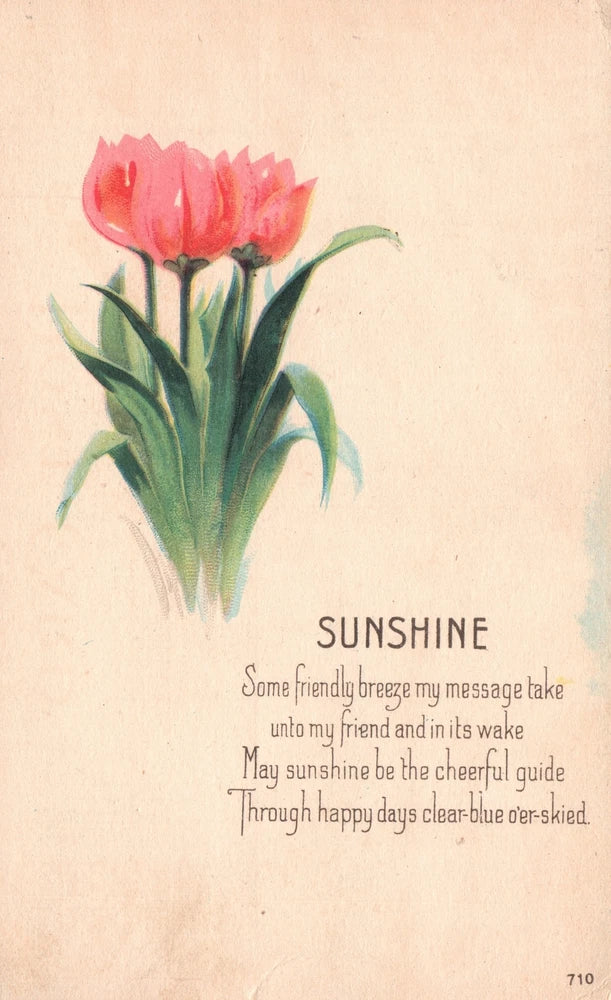 SUNSHINE
Some friendly breeze my message take
unto my friend and in its wake
May sunshine be the cheerful guide
Through happy days clear-blue o'er-skied.
710